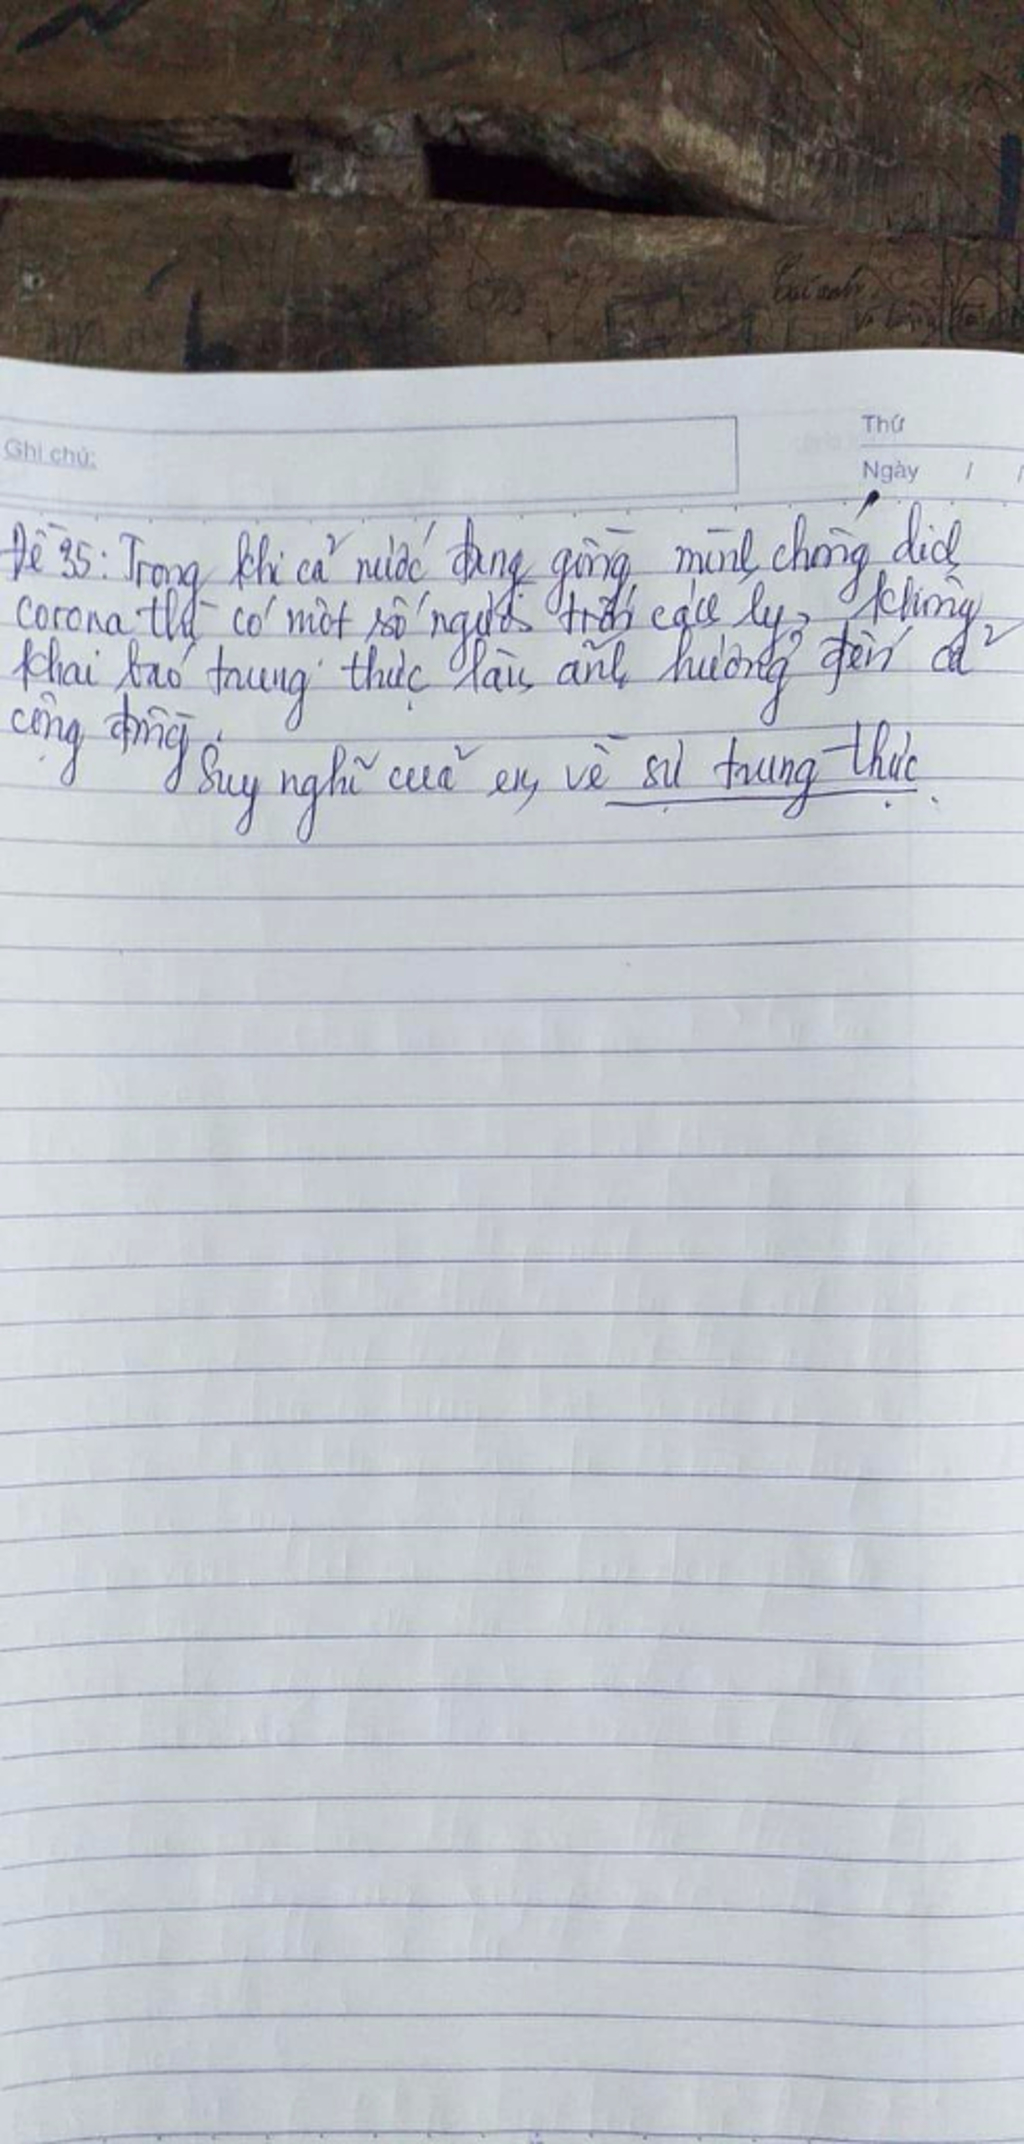 Ghi chú:
Thứ
Ngày / /
Đề 35: Trong khi cả nước đang gồng mình chống dịch
corona thì có một số người trốn cách ly, không
khai báo trung thực làm ảnh hưởng đến cả
cộng đồng.
Suy nghĩ của em về sự trung thực.